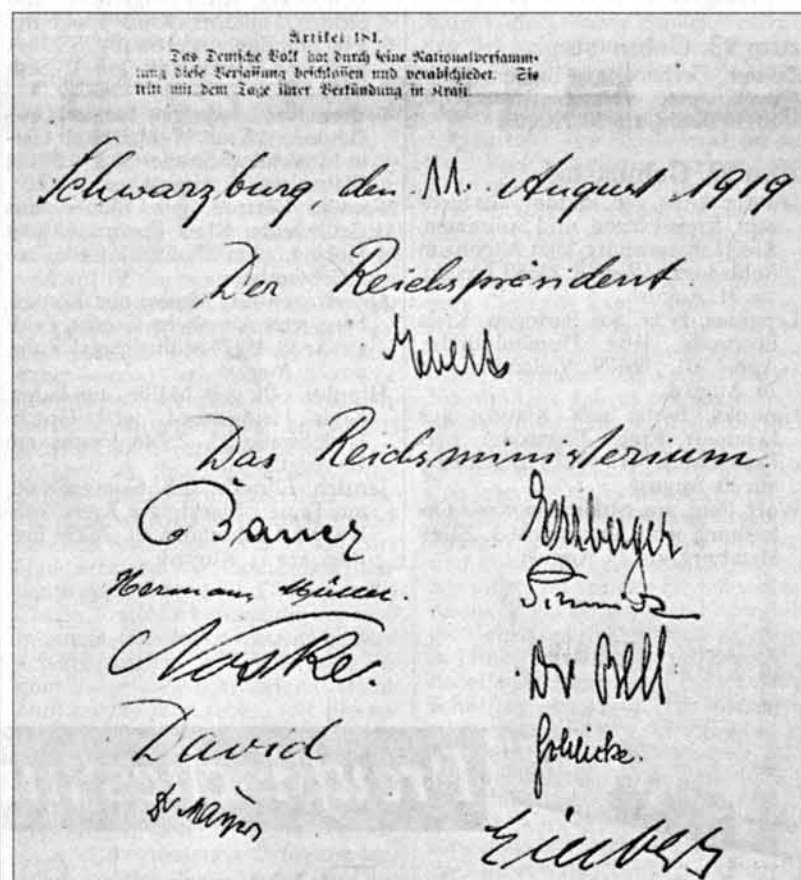 Artikel 181.
Das Deutsche Volk hat durch seine Nationalversamm-
lung diese Verfassung beschlossen und verabschiedet. Sie
tritt mit dem Tage ihrer Verkündung in Kraft.
Schwarzburg, den 11. August 1919
Der Reichspräsident
Ebert
Das Reichsministerium
Bauer Erzberger
Hermann Müller Schmidt
Noske. Dr Bell
David Schlicke.
Dr Mayer
Giesberts